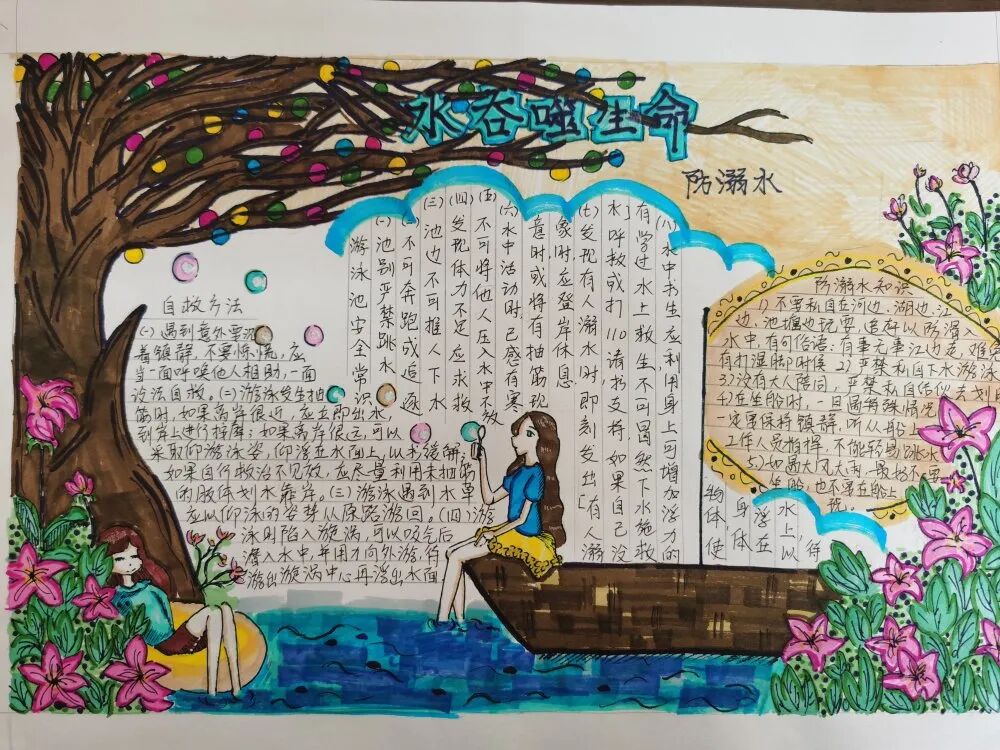 水吞噬生命
防溺水
自救方法
(一)遇到意外要沉
着镇静,不要惊慌,应
当一面呼唤他人相助,一面
设法自救。(二)游泳发生抽
筋时,如果离岸很近,应立即出水,
到岸上进行按摩;如果离岸很远,可以
采取仰游泳姿,仰浮在水面上,以求缓解;
如果自行救治不见效,应尽量利用未抽筋
的肢体划水靠岸。(三)游泳遇到水草
应以仰泳的姿势从原路游回。(四)游
泳时陷入漩涡,可以吸气后
潜入水中,并用力向外游,待
游出漩涡中心再浮出水面
游泳池安全常识
(一)池别严禁跳水
(二)不可奔跑或追逐
(三)池边不可推人下水
(四)发现体力不足应求救
(五)不可将他人压入水中不放
(六)水中活动时,已感有寒
意时或将有抽筋现
象时应登岸休息
(七)发现有人溺水时即刻发出「有人溺
水」呼救或打110请求支持,如果自己没
有学过水上救生,不可冒然下水施救
(八)水中求生应利用身上可增加浮力的
物体,使
身体
浮在
水上,以
待
防溺水知识
1)不要私自在河边、湖边、江
边、池塘边玩耍、追赶以防滑入
水中,有句俗语:有事无事江边走,难免
有打湿脚时候 2)严禁私自下水游泳
3)没有大人陪同,严禁私自结伙去划船
4)在坐船时,一旦遇特殊情况
一定要保持镇静,听从船上
工作人员指挥,不能轻易跳水
5)如遇大风大雨,最好不要
坐船,也不要在船上
玩。